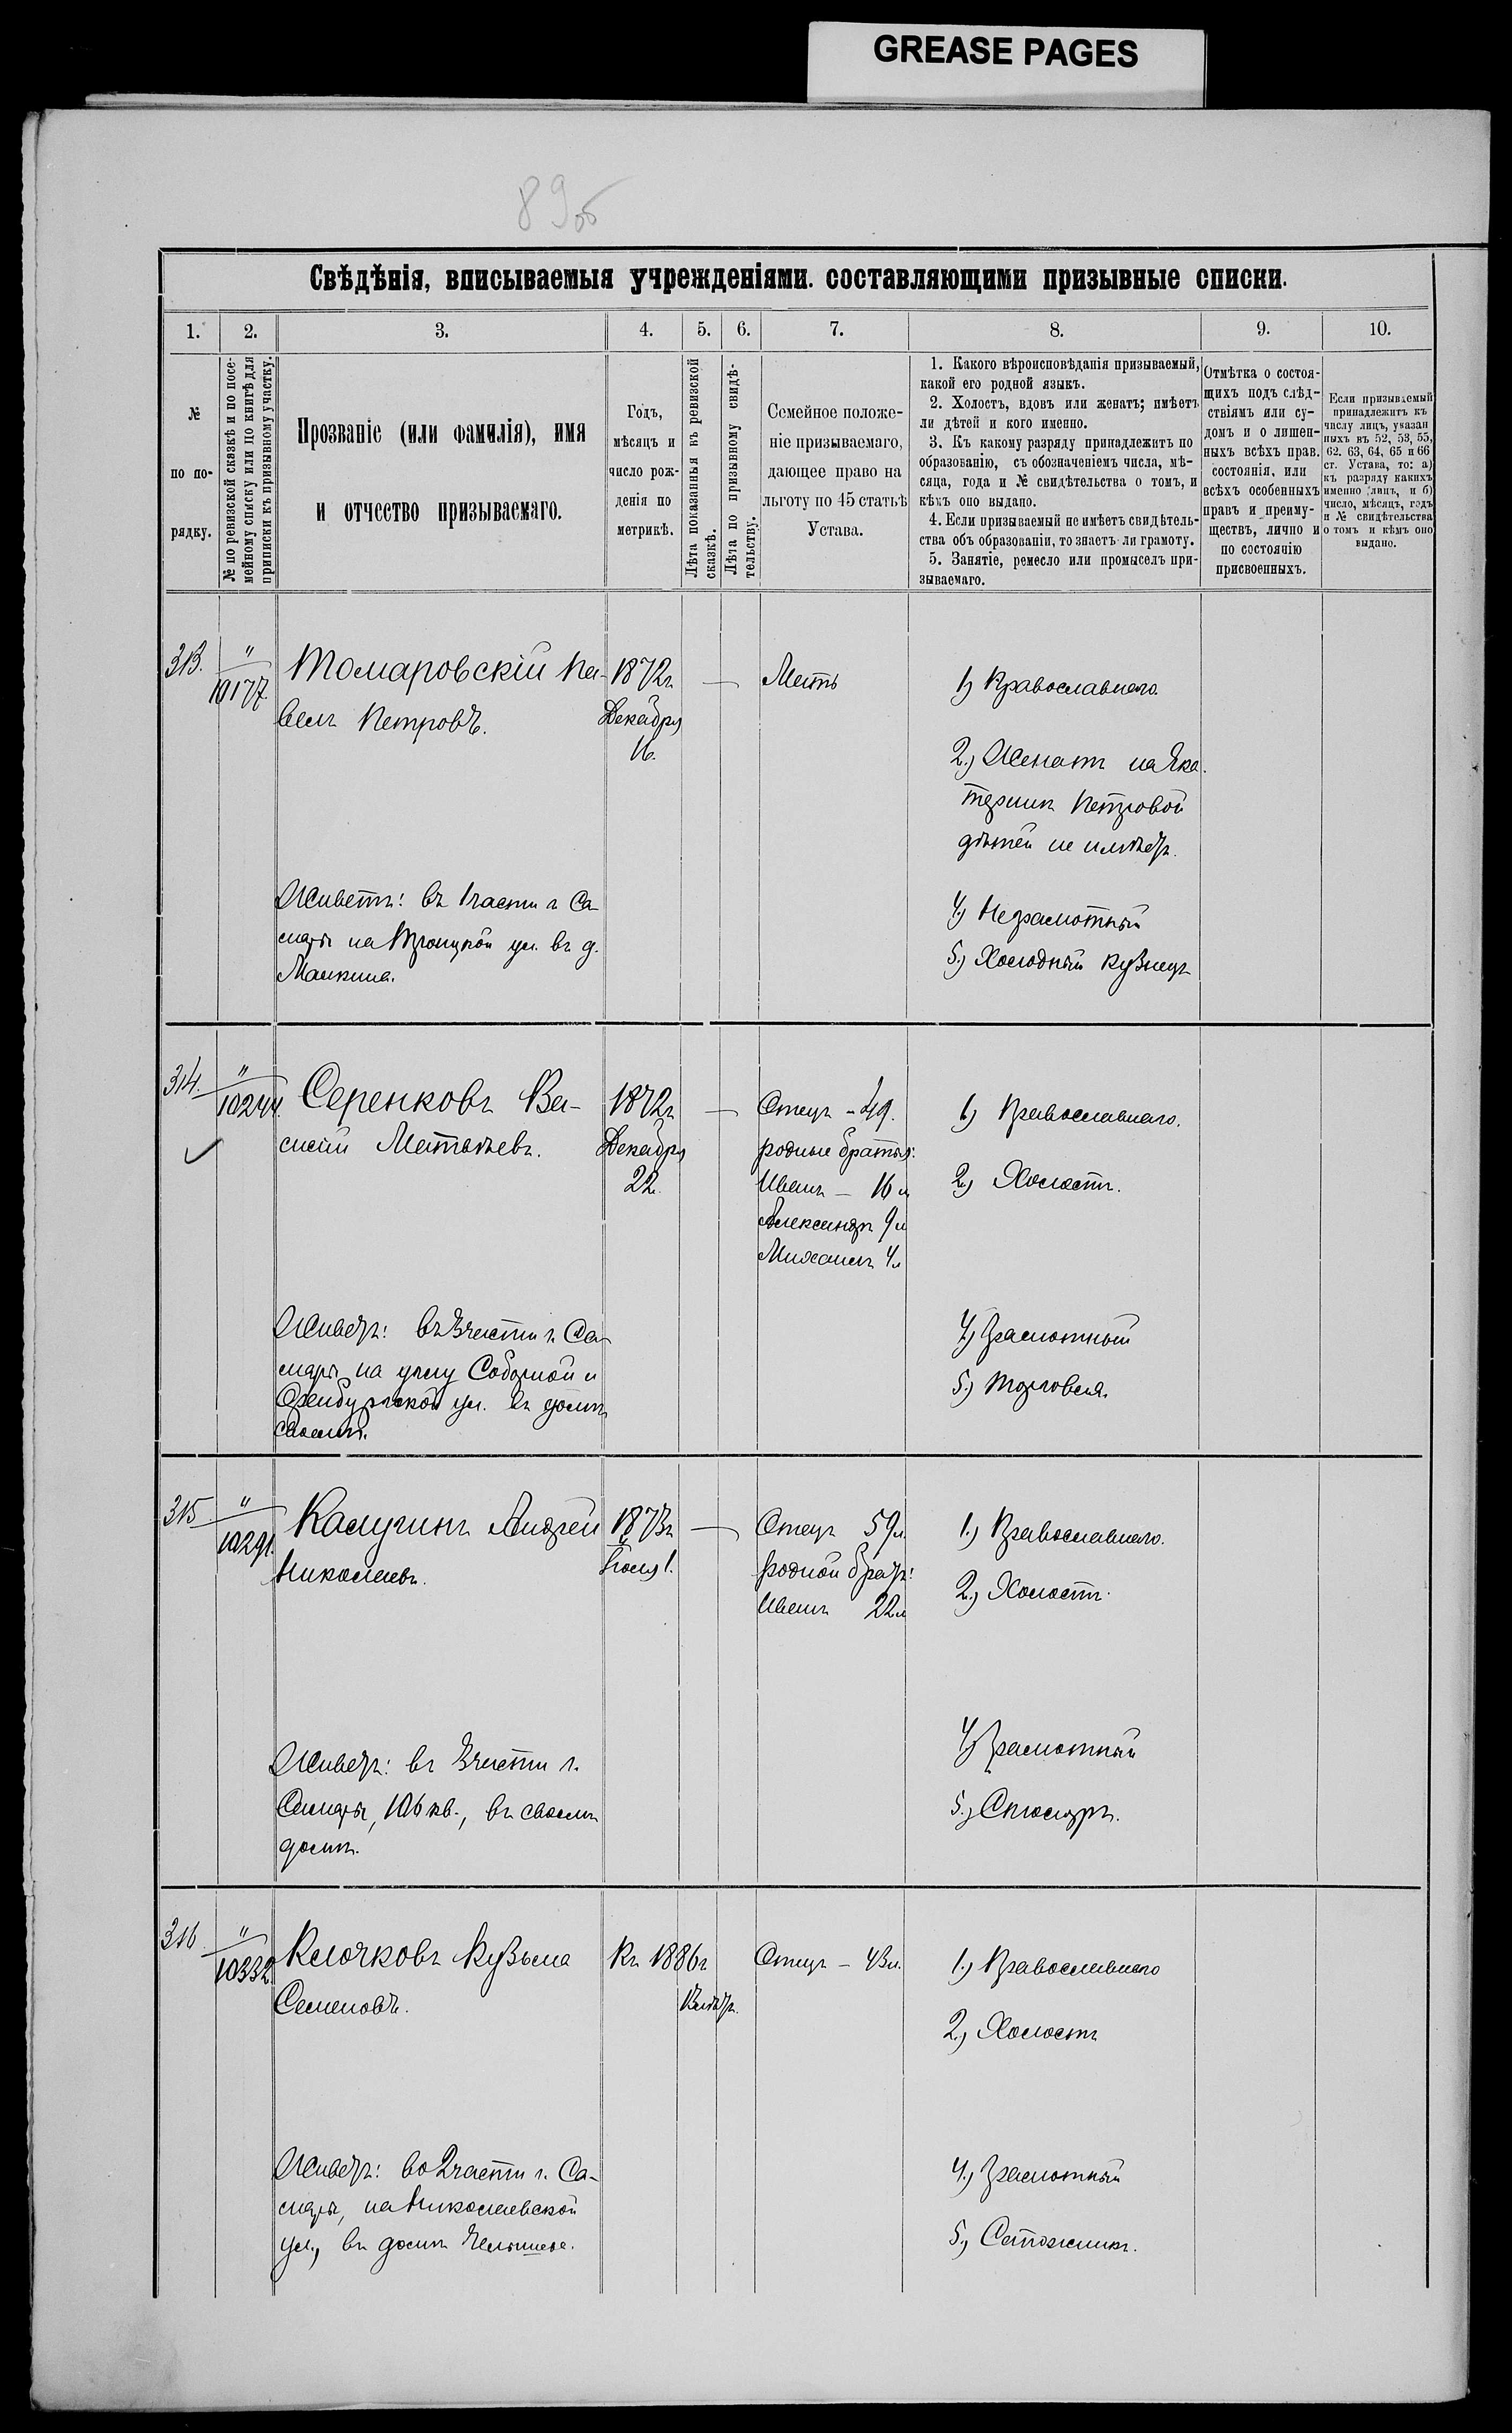 GREASE PAGES
89об
Свѣдѣнія, вписываемыя учрежденіями. составляющими призывные списки.
1. 2. 3. 4. 5. 6. 7. 8. 9. 10.
№
по по-
рядку.
№ по ревизской сказкѣ и по посе-
мейному списку или по книгѣ для
приписки къ призывному участку.
Прозваніе (или фамилія), имя
и отчество призываемаго.
Годъ,
мѣсяцъ и
число рож-
денія по
метрикѣ.
Лѣта показанныя къ ревизской
сказкѣ.
Лѣта по призывному свидѣ-
тельству.
Семейное положе-
ніе призываемаго,
дающее право на
льготу по 45 статьѣ
Устава.
1. Какого вѣроисповѣданія призываемый,
какой его родной языкъ.
2. Холостъ, вдовъ или женатъ; имѣетъ
ли дѣтей и кого именно.
3. Къ какому разряду принадлежитъ по
образованію, съ обозначеніемъ числа, мѣ-
сяца, года и № свидѣтельства о томъ, и
кѣмъ оно выдано.
4. Если призываемый не имѣетъ свидѣтель-
ства объ образованіи, то знаетъ ли грамоту.
5. Занятіе, ремесло или промыселъ при-
зываемаго.
Отмѣтка о состоя-
щихъ подъ слѣд-
ствіямъ или су-
домъ и о лишен-
ныхъ всѣхъ прав.
состоянія, или
всѣхъ особенныхъ
правъ и преиму-
ществъ, лично и
по состоянію
присвоенныхъ.
Если призываемый
принадлежитъ къ
числу лицъ, указан
ныхъ въ 52, 53, 55,
62. 63, 64, 65 и 66
ст. Устава, то: а)
къ разряду какихъ
именно лицъ, и б)
число, мѣсяцъ, годъ
и № свидѣтельства
о томъ и кѣмъ оно
выдано.
313.
"
10177.
Томаровскій Па-
велъ Петровъ.
Живетъ: въ 1 части г. Са-
мары на Троицкой ул. въ д.
Маикина.
1872г.
Декабря
16.
—
Мать
1) Православнаго
2.) Женатъ на Ека-
теринѣ Петровой
дѣтей не имѣетъ.
4.) Неграмотный
5.) Холодный кузнецъ
314.
"
10244.
Серенковъ Ва-
силій Матвѣевъ.
Живетъ: въ 3 части г. Са-
мары на углу Соборной и
Оренбургской ул. въ домѣ
своемъ.
1872г.
Декабря
22.
—
Отецъ - 49.
родные братья:
Иванъ — 16 л
Александръ 9 л
Михаилъ 4 л
1) Православнаго.
2.) Холостъ.
4.) Грамотный
5.) Торговля.
315
"
10291.
Калугинъ Андрей
Николаевъ.
Живетъ: въ 3 части г.
Самары, 106 кв., въ своемъ
домѣ.
1873г.
Іюля 1.
—
Отецъ 59 л.
родной братъ:
Иванъ 22 л
1.) Православнаго.
2.) Холостъ.
4.) Грамотный
5.) Столяръ.
316.
"
10332.
Клочковъ Кузьма
Семеновъ.
Живетъ: во 2 части г. Са-
мары, на Николаевской
ул., въ домѣ
Къ 1886г.
Отецъ — 43 л.
1.) Православнаго
2.) Холостъ
4.) Грамотный
5.) Сапожникъ.